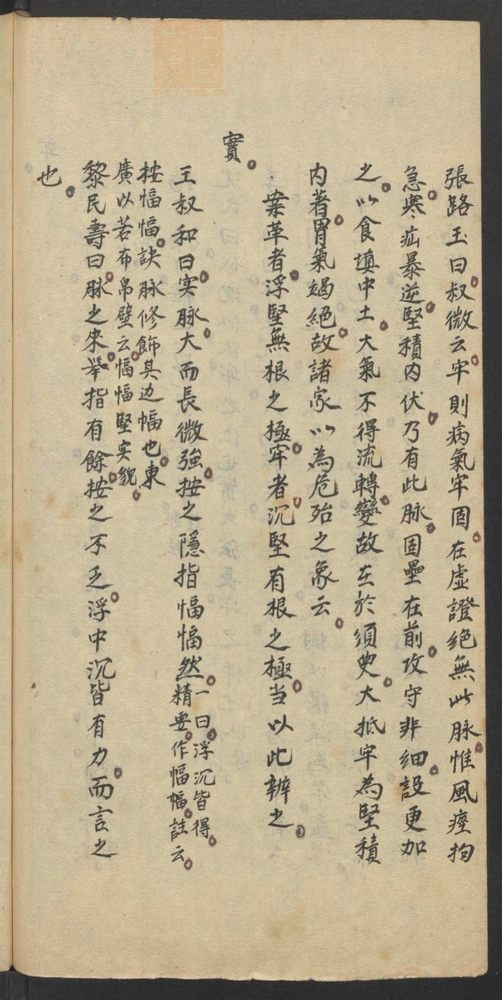 張路玉曰叔微云牢則病氣牢固在虛證絕無此脉惟風痙拘
急寒疝暴逆堅積内伏乃有此脉固壘在前攻守非細設更加
之以食填中土大氣不得流轉變故在於須臾大抵牢為堅積
内著胃氣竭絕故諸家以為危殆之象云
案革者浮堅無根之極牢者沉堅有根之極当以此辨之
實
王叔和曰实脉大而長微強按之隱指愊愊然一曰浮沉皆得
精要作幅幅註云
按幅幅訣脉修飾其边幅也東
廣以若布帛壁云愊愊堅实貌
黎民壽曰脉之來舉指有餘按之不乏浮中沉皆有力而言之
也